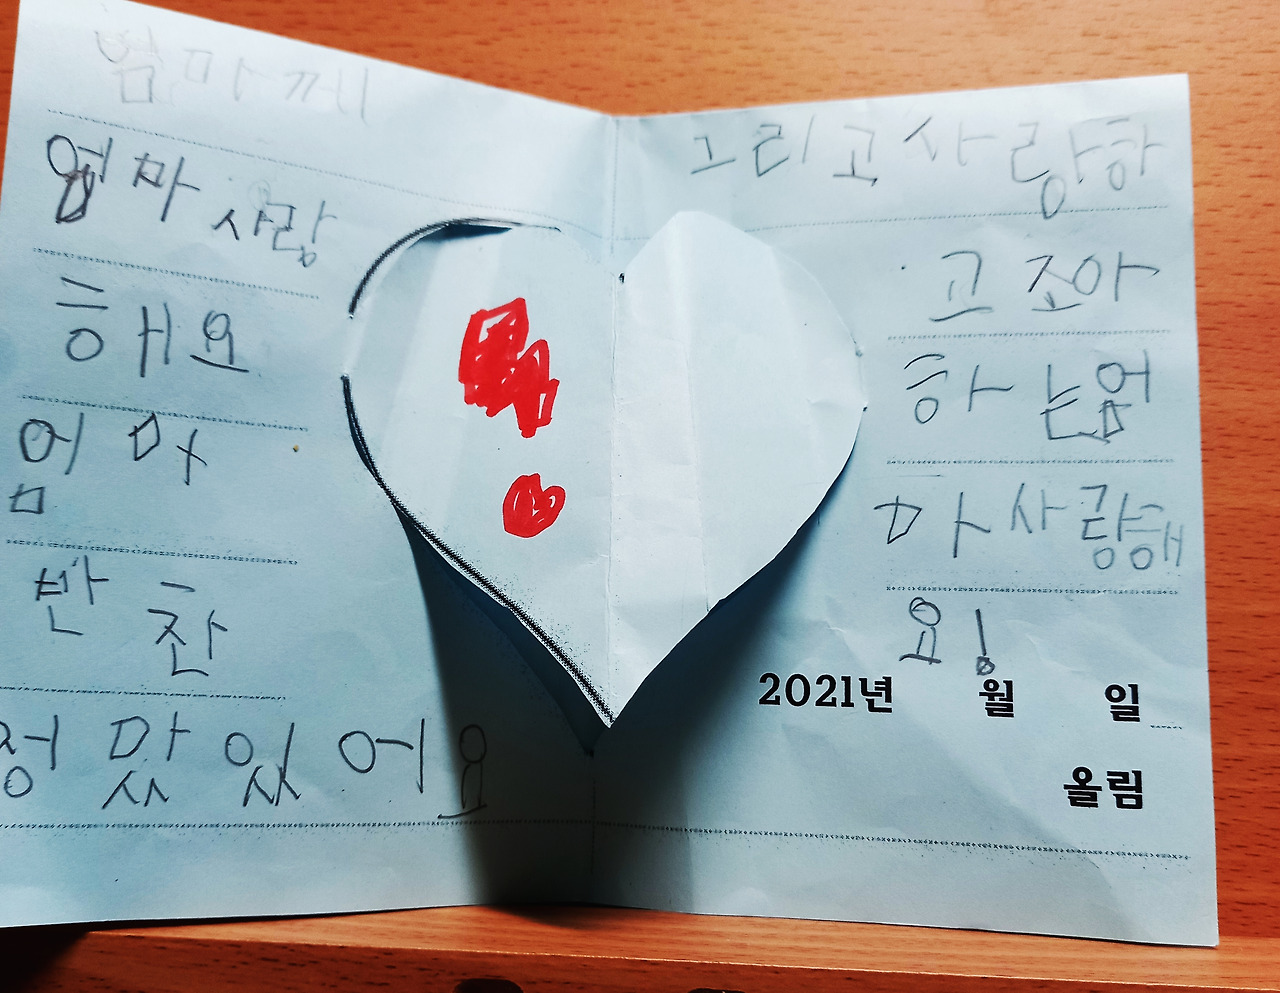 엄마께
엄마 사랑
해요
엄마
반찬
정 맜있어요
그리고 사랑하
고 조아
하는 엄
마 사랑해
요!
2021년 월 일
올림